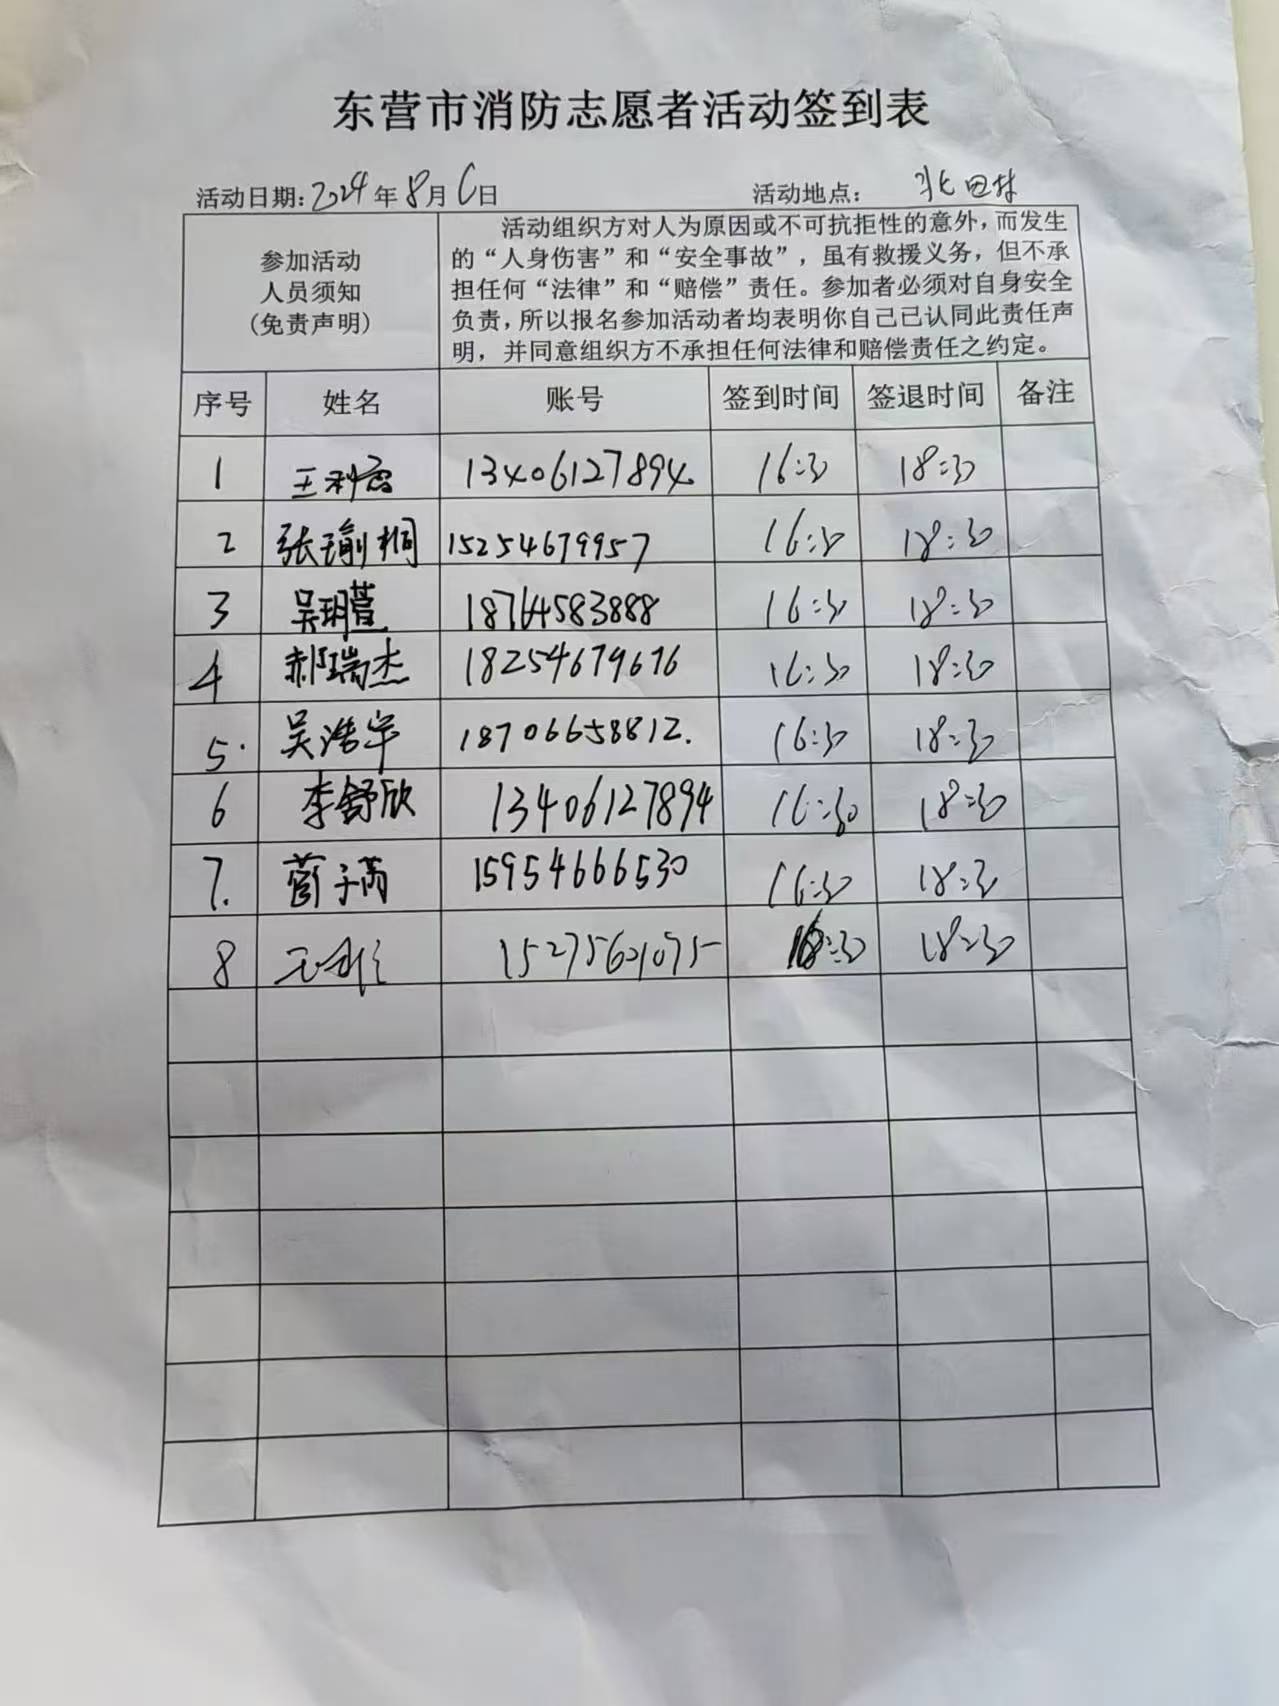 东营市消防志愿者活动签到表
活动日期：2024年8月6日 活动地点：北田村
参加活动
人员须知
（免责声明）
活动组织方对人为原因或不可抗拒性的意外，而发生
的“人身伤害”和“安全事故”，虽有救援义务，但不承
担任何“法律”和“赔偿”责任。参加者必须对自身安全
负责，所以报名参加活动者均表明你自己已认同此责任声
明，并同意组织方不承担任何法律和赔偿责任之约定。
序号 姓名 账号 签到时间 签退时间 备注
1 王利 13406127894 16:30 18:30
2 张瑜桐 15254679957 16:30 18:30
3 吴玥萱 18764583888 16:30 18:30
4 郝瑞杰 18254679676 16:30 18:30
5. 吴浩宇 18706658812. 16:30 18:30
6 李舒欣 13406127894 16:30 18:30
7. 菅子芮 15954666530 16:30 18:30
8 16:30 18:30